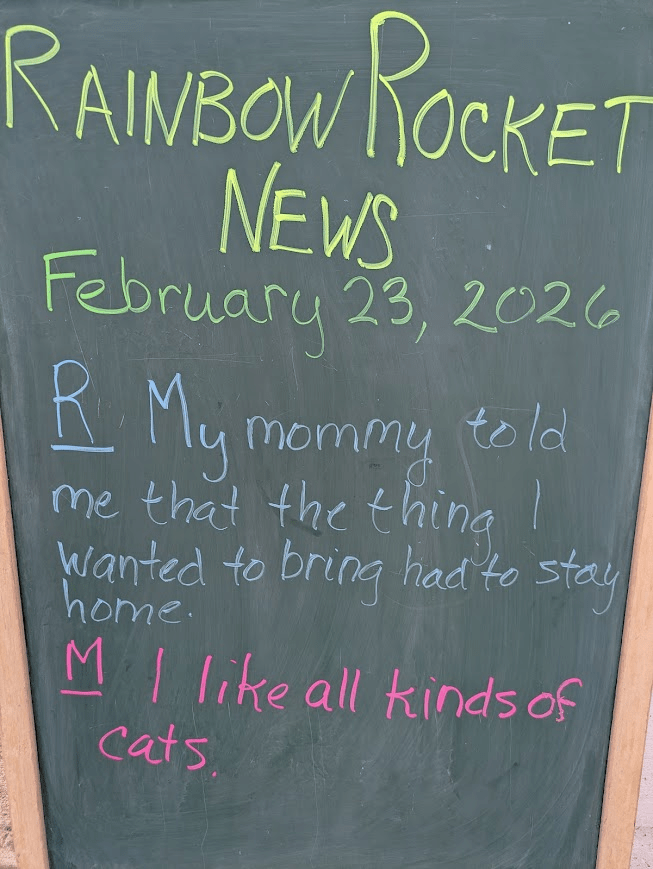 RAINBOW ROCKET
NEWS
February 23, 2026
R My mommy told
me that the thing I
wanted to bring had to stay
home.
M I like all kinds of
cats.